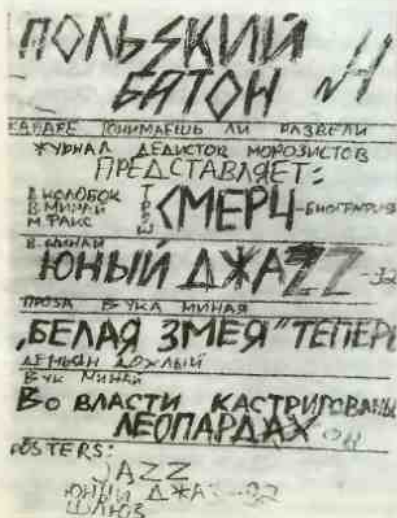 ПОЛЬSКИЙ
БАТОН
КАБАРЕ ПОНИМАЕШЬ ЛИ РАЗВЕЛИ
ЖУРНАЛ ДЕДИСТОВ МОРОЗИСТОВ
ПРЕДСТАВЛЯЕТ:
В КОЛОБОК
В МИНАЙ
М. ФАКС
СМЕРЦ-БИОГРАФИЯ
В. МИНАЙ
ЮНЫЙ ДЖАZZ-32
ПРОЗА ВУКА МИНАЯ
„БЕЛАЯ ЗМЕЯ" ТЕПЕРЬ
ДЕМЬЯН ДОХЛЫЙ
ВУК МИНАЙ
ВО ВЛАСТИ КАСТРИРОВАНЫ
ЛЕОПАРДАХ
POSTERS:
JAZZ
ЮНЫЙ ДЖАZ-32
ШЛЮЗ